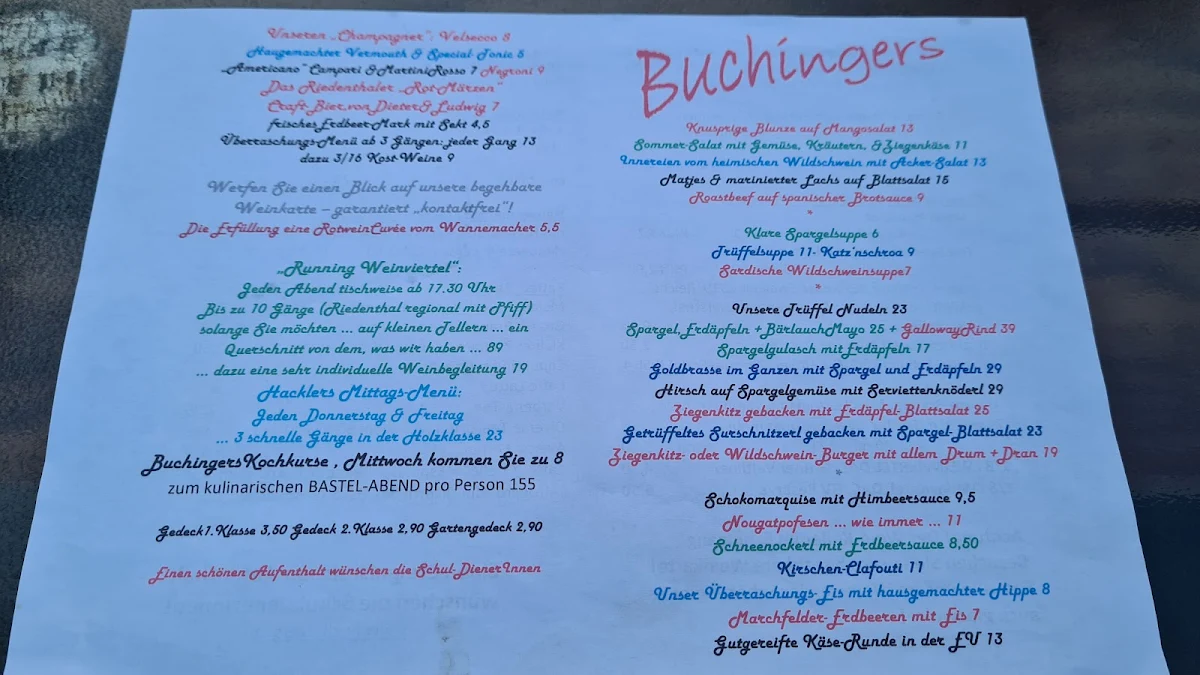 Unseren „Champagner": Velsecco 8
Haugemachter Vermouth & Special-Tonic 5
„Americano" Campari & MartiniRosso 7 Negroni 9
Das Riedenthaler „Rot-Märzen"
Craft-Bier von Dieter & Ludwig 7
frisches Erdbeer-Mark mit Sekt 4,5
Überraschungs-Menü ab 3 Gängen: jeder Gang 13
dazu 3/16 Kost-Weine 9
Werfen Sie einen Blick auf unsere begehbare
Weinkarte – garantiert „kontaktfrei"!
Die Erfüllung eine RotweinCuvée vom Wannemacher 5,5
„Running Weinviertel":
Jeden Abend tischweise ab 17.30 Uhr
Bis zu 10 Gänge (Riedenthal regional mit Pfiff)
solange Sie möchten ... auf kleinen Tellern ... ein
Querschnitt von dem, was wir haben ... 89
... dazu eine sehr individuelle Weinbegleitung 19
Hacklers Mittags-Menü:
Jeden Donnerstag & Freitag
... 3 schnelle Gänge in der Holzklasse 23
BuchingersKochkurse , Mittwoch kommen Sie zu 8
zum kulinarischen BASTEL-ABEND pro Person 155
Gedeck 1. Klasse 3,50 Gedeck 2. Klasse 2,90 Gartengedeck 2,90
Einen schönen Aufenthalt wünschen die Schul-DienerInnen
Buchingers
Knusprige Blunze auf Mangosalat 13
Sommer-Salat mit Gemüse, Kräutern, & Ziegenkäse 11
Innereien vom heimischen Wildschwein mit Acker-Salat 13
Matjes & marinierter Lachs auf Blattsalat 15
Roastbeef auf spanischer Brotsauce 9
*
Klare Spargelsuppe 6
Trüffelsuppe 11- Katz'nschroa 9
Sardische Wildschweinsuppe7
*
Unsere Trüffel Nudeln 23
Spargel, Erdäpfeln + BärlauchMayo 25 + GallowayRind 39
Spargelgulasch mit Erdäpfeln 17
Goldbrasse im Ganzen mit Spargel und Erdäpfeln 29
Hirsch auf Spargelgemüse mit Serviettenknöderl 29
Ziegenkitz gebacken mit Erdäpfel-Blattsalat 25
Getrüffeltes Surschnitzerl gebacken mit Spargel-Blattsalat 23
Ziegenkitz- oder Wildschwein-Burger mit allem Drum + Dran 19
*
Schokomarquise mit Himbeersauce 9,5
Nougatpofesen ... wie immer ... 11
Schneenockerl mit Erdbeersauce 8,50
Kirschen-Clafouti 11
Unser Überraschungs-Eis mit hausgemachter Hippe 8
Marchfelder-Erdbeeren mit Eis 7
Gutgereifte Käse-Runde in der EU 13